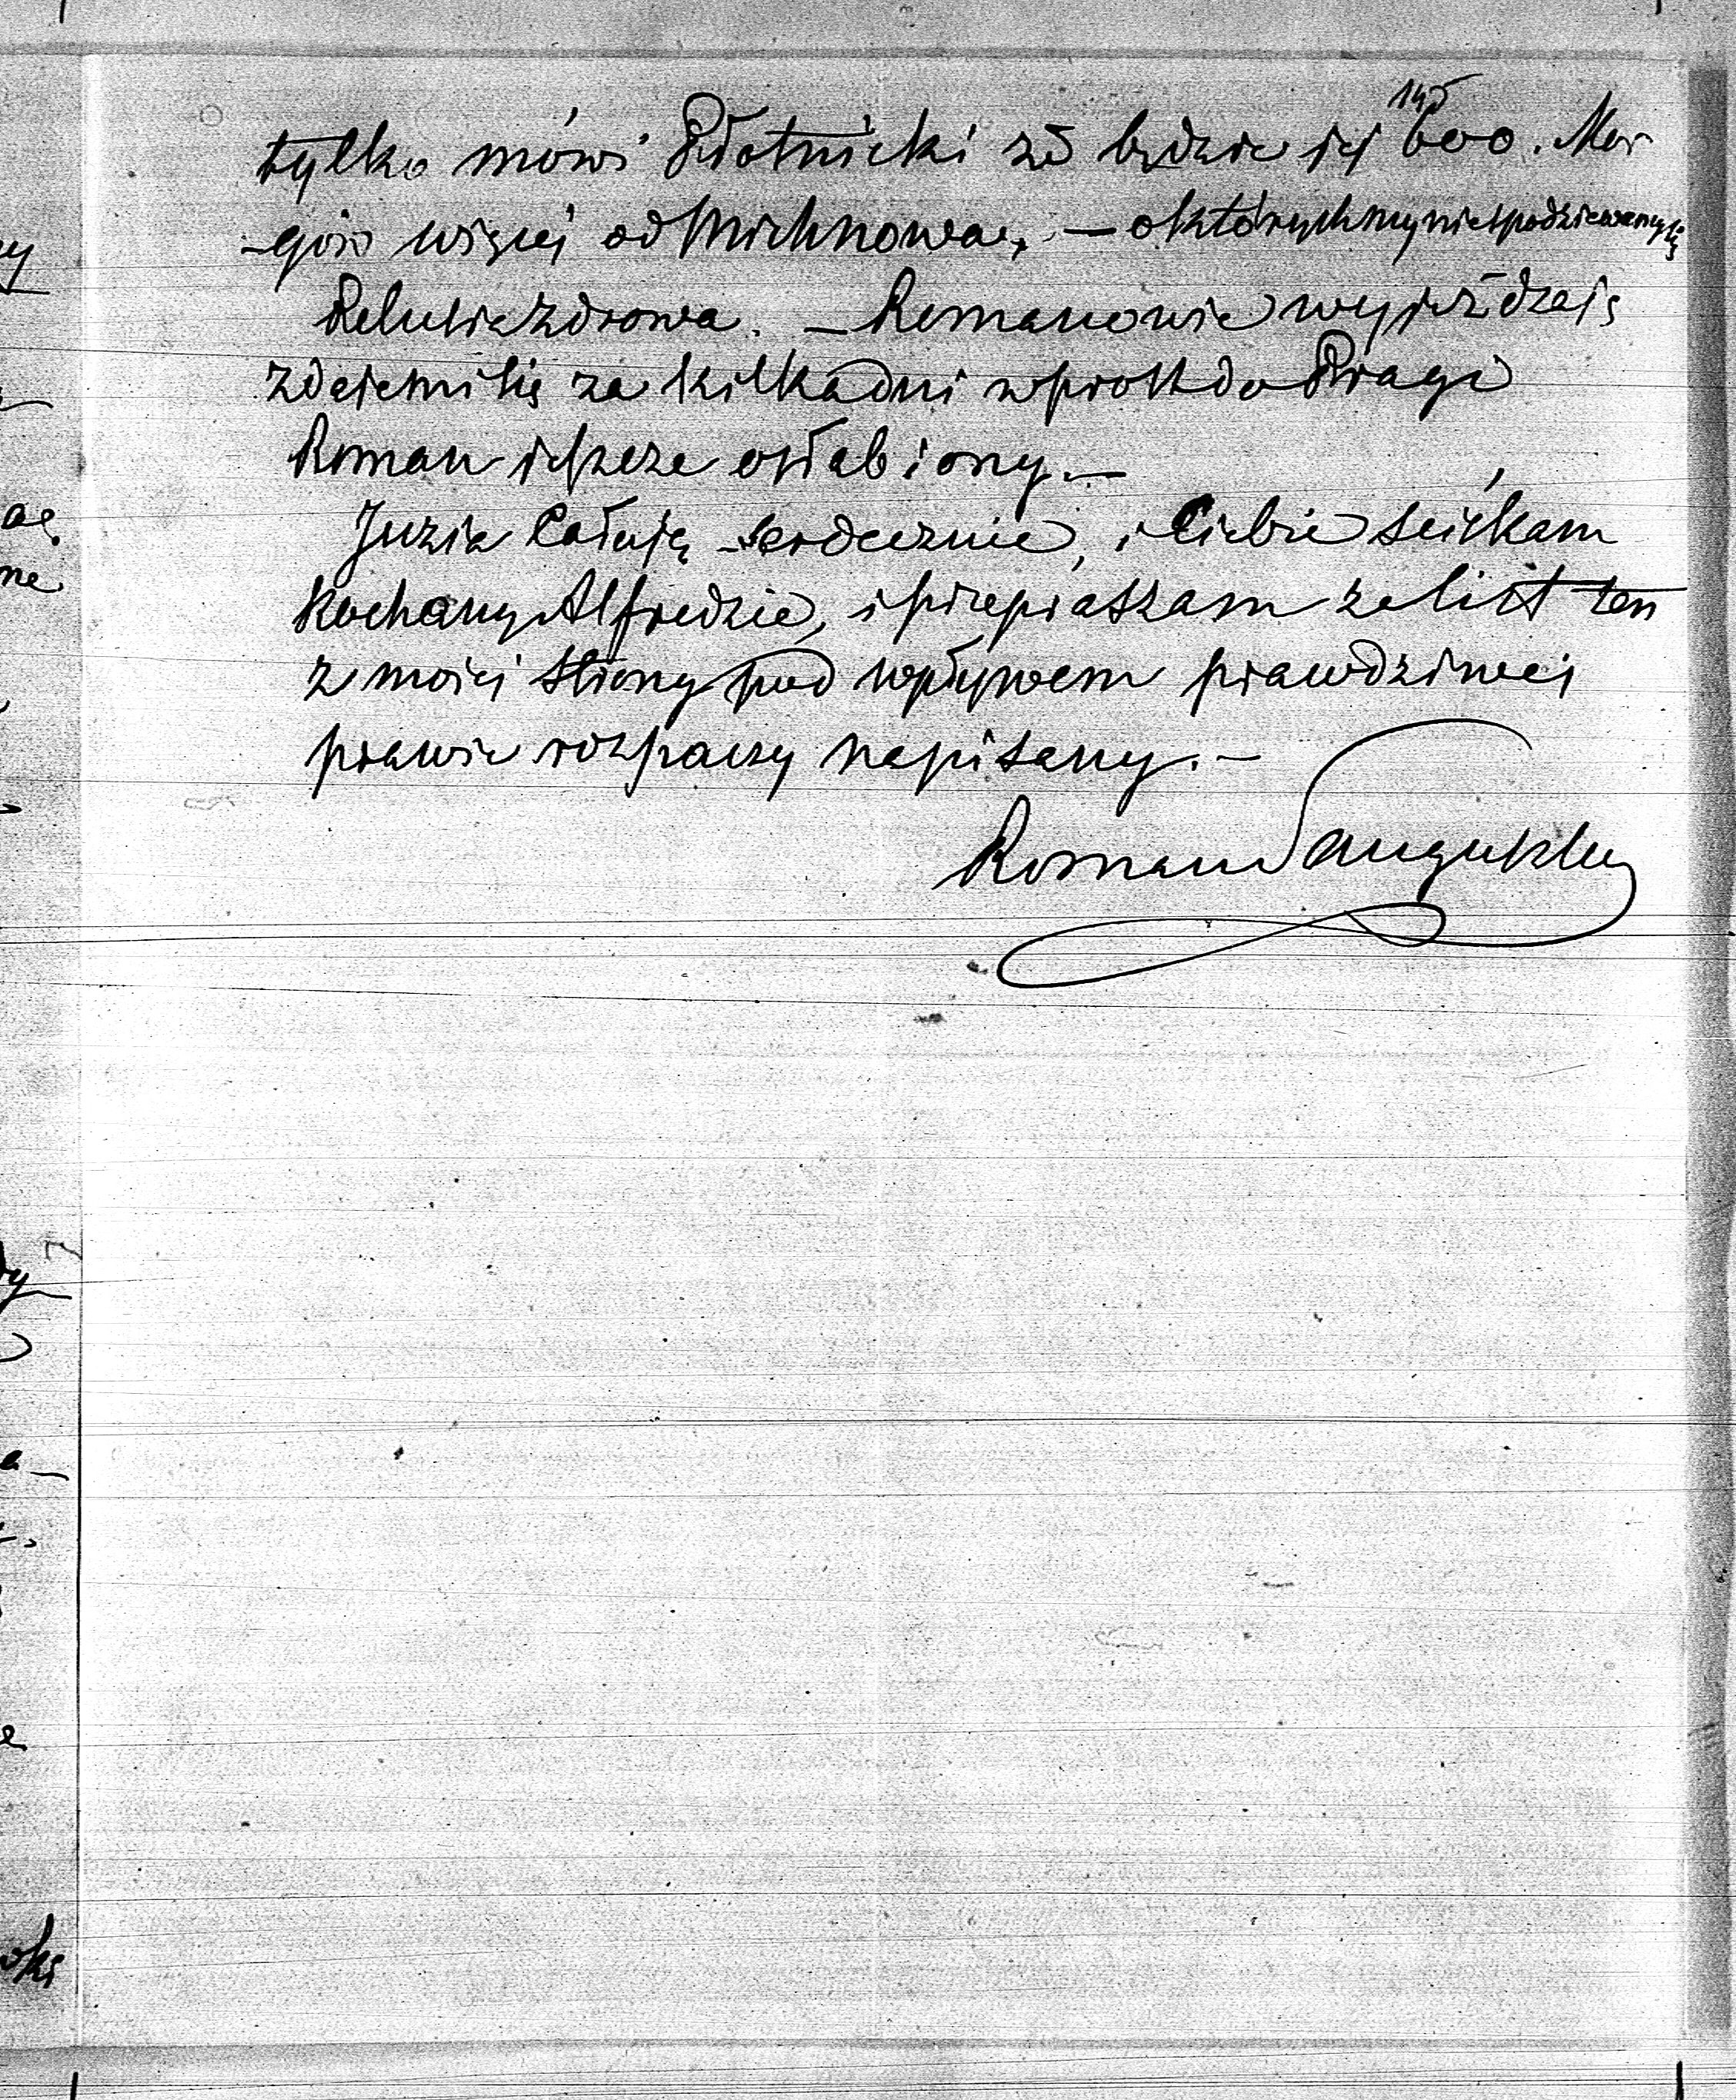 145
tylko mówi Płotnicki że będzie jej 600. Mor
-gów więcej od Michnowa, — o których my nie spodziewamy się
zdrowa. — Romanowie wyjeżdzają
zdaje mi się za kilka dni wprost do Pragi
Roman jeszcze osłabiony. —
Juzia Całuję serdecznie, i Ciebie sciskam
Kochany Alfredzie, i przepraszam że list ten
z mojej strony pod wpływem prawdziwej
prawie rozpaczy napisany. —
Roman Sanguszko